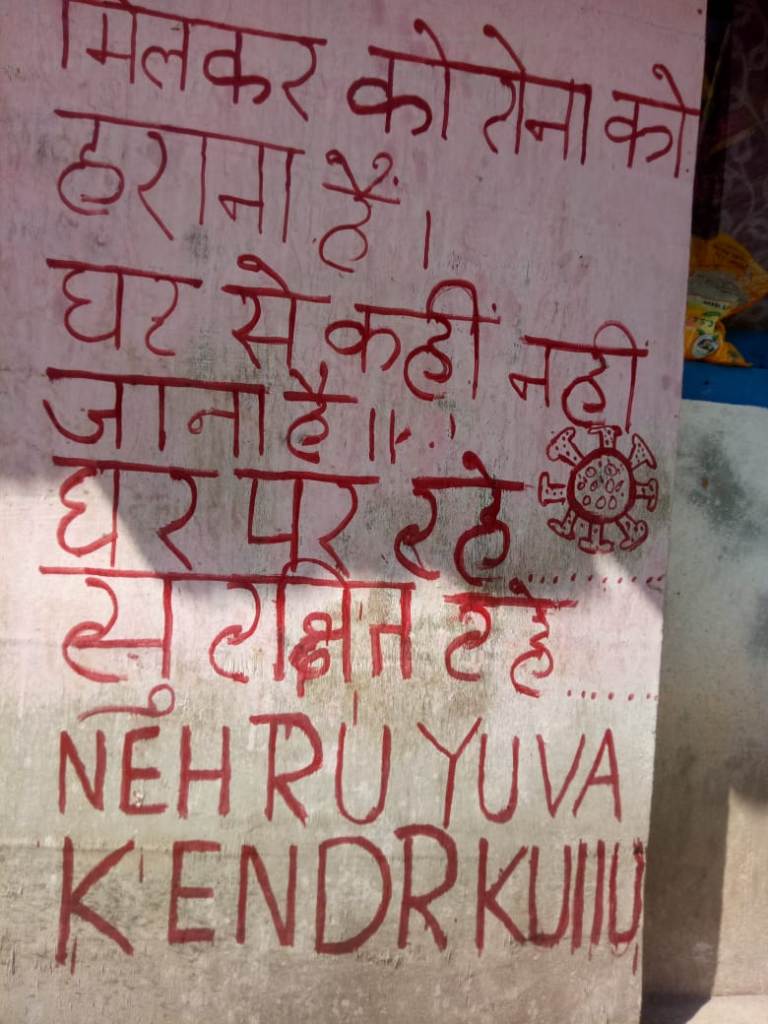 मिलकर कोरोना को
हराना हैं।
घर से कहीं नही
जाना है॥
घर पर रहे......
सुरक्षित रहे.....
NEHRU YUVA
KENDR KUllU